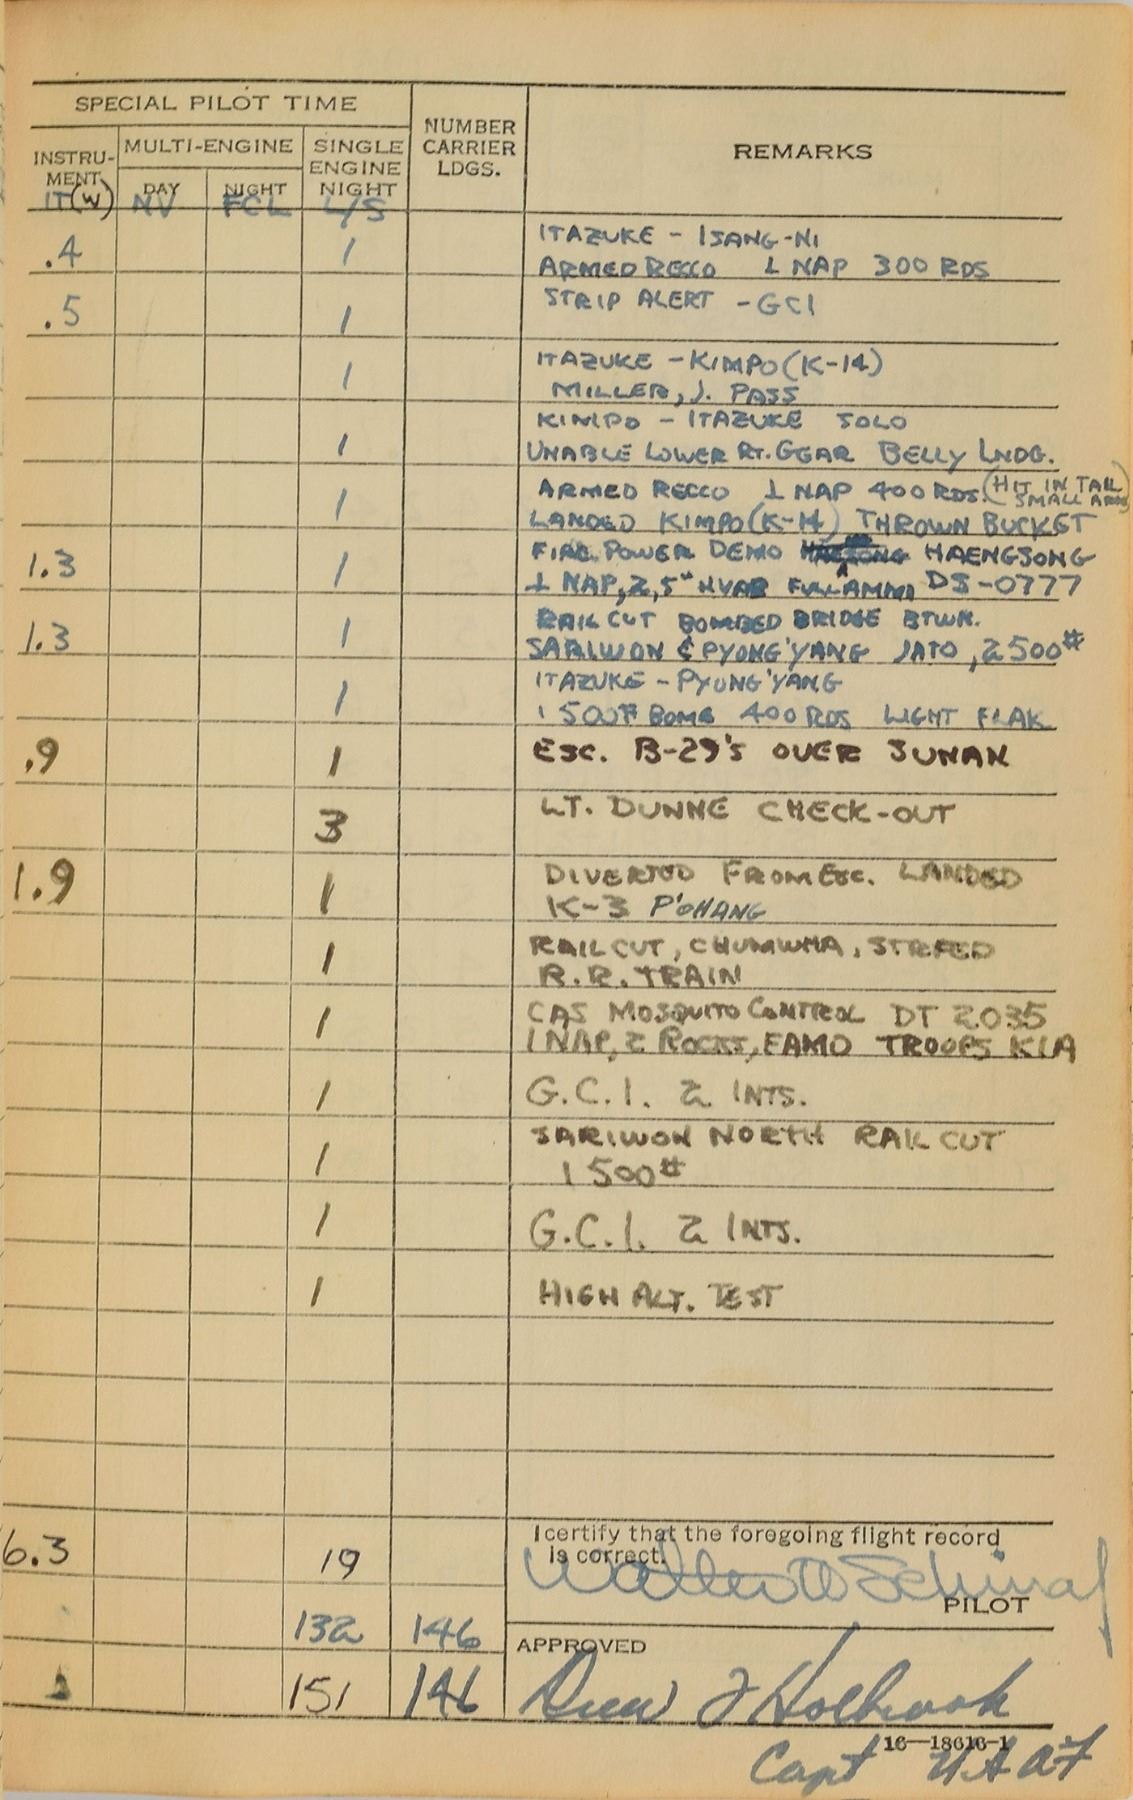 SPECIAL PILOT TIME
NUMBER CARRIER LDGS.
REMARKS
INSTRU-MENT
MULTI-ENGINE
SINGLE ENGINE NIGHT
DAY
NIGHT
IT(W) NV FCL L/S
.4 1 ITAZUKE - ISANG-NI
ARMED RECCO 1 NAP 300 RDS
.5 1 STRIP ALERT - GCI
1 ITAZUKE - KIMPO (K-14)
MILLER, J. PASS
KIMPO - ITAZUKE SOLO
1 UNABLE LOWER RT. GEAR BELLY LNDG.
1 ARMED RECCO 1 NAP 400 RDS. (HIT IN TAIL SMALL ARMS)
LANDED KIMPO (K-14) THROWN BUCKET
1.3 1 FIRE POWER DEMO HAENGSONG
1 NAP, 2, 5" HVAR FULL AMMO DS-0777
1.3 1 RAIL CUT BOMBED BRIDGE BTWN.
SARIWON & PYONG'YANG JATO, 2 500#
1 ITAZUKE - PYONG'YANG
1 500# BOMB 400 RDS LIGHT FLAK
.9 1 ESC. B-29'S OVER SUNAN
3 LT. DUNNE CHECK-OUT
1.9 1 DIVERTED FROM ESC. LANDED
K-3 P'OHANG
1 RAIL CUT, CHUNWHA, STRAFED
R.R. TRAIN
1 CAS MOSQUITO CONTROL DT 2035
1 NAP, 2 ROCKS, EAMO TROOPS KIA
1 G.C.I. 2 INTS.
1 SARIWON NORTH RAIL CUT
1 500#
1 G.C.I. 2 INTS.
1 HIGH ALT. TEST
I certify that the foregoing flight record
is correct.
6.3 19
Walter W Schiraf
PILOT
132 146
APPROVED
151 146 Drew J Holbrook
16—18616-1
Capt USAF